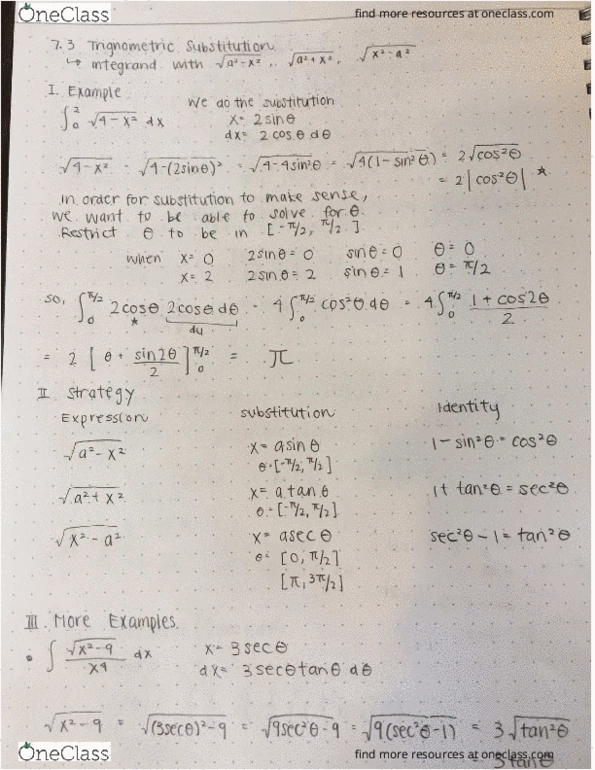 OneClass
find more resources at oneclass.com
7.3 Trignometric Substitution
↳ integrand with √a²-x², √a²+x², √x²-a²
I. Example
∫₀² √4-x² dx
We do the substitution
x= 2sinθ
dx= 2 cosθ dθ
√4-x² = √4-(2sinθ)² = √4-4sin²θ = √4(1-sin²θ) = 2√cos²θ
= 2|cos²θ| *
in order for substitution to make sense,
we want to be able to solve for θ.
Restrict θ to be in [-π/2, π/2].
when x=0 2sinθ=0 sinθ=0 θ=0
x=2 2sinθ=2 sinθ=1 θ=π/2
so, ∫₀^π/2 2cosθ 2cosθdθ = 4∫₀^π/2 cos²θ dθ = 4∫₀^π/2 1+cos2θ/2
*
du
= 2 [θ + sin2θ/2]₀^π/2 = π
II Strategy
Expression substitution Identity
√a²-x² x= asinθ 1-sin²θ=cos²θ
θ=[-π/2, π/2]
√a²+x² x= atanθ 1+tan²θ=sec²θ
θ=[-π/2, π/2]
√x²-a² x= asecθ sec²θ-1=tan²θ
θ= [0, π/2]
[π, 3π/2]
III. More Examples
• ∫ √x²-9/x⁴ dx x=3secθ
dx= 3secθtanθ dθ
√x²-9 = √(3secθ)²-9 = √9sec²θ-9 = √9(sec²θ-1) = 3√tan²θ
OneClass
find more resources at oneclass.com
3tanθ